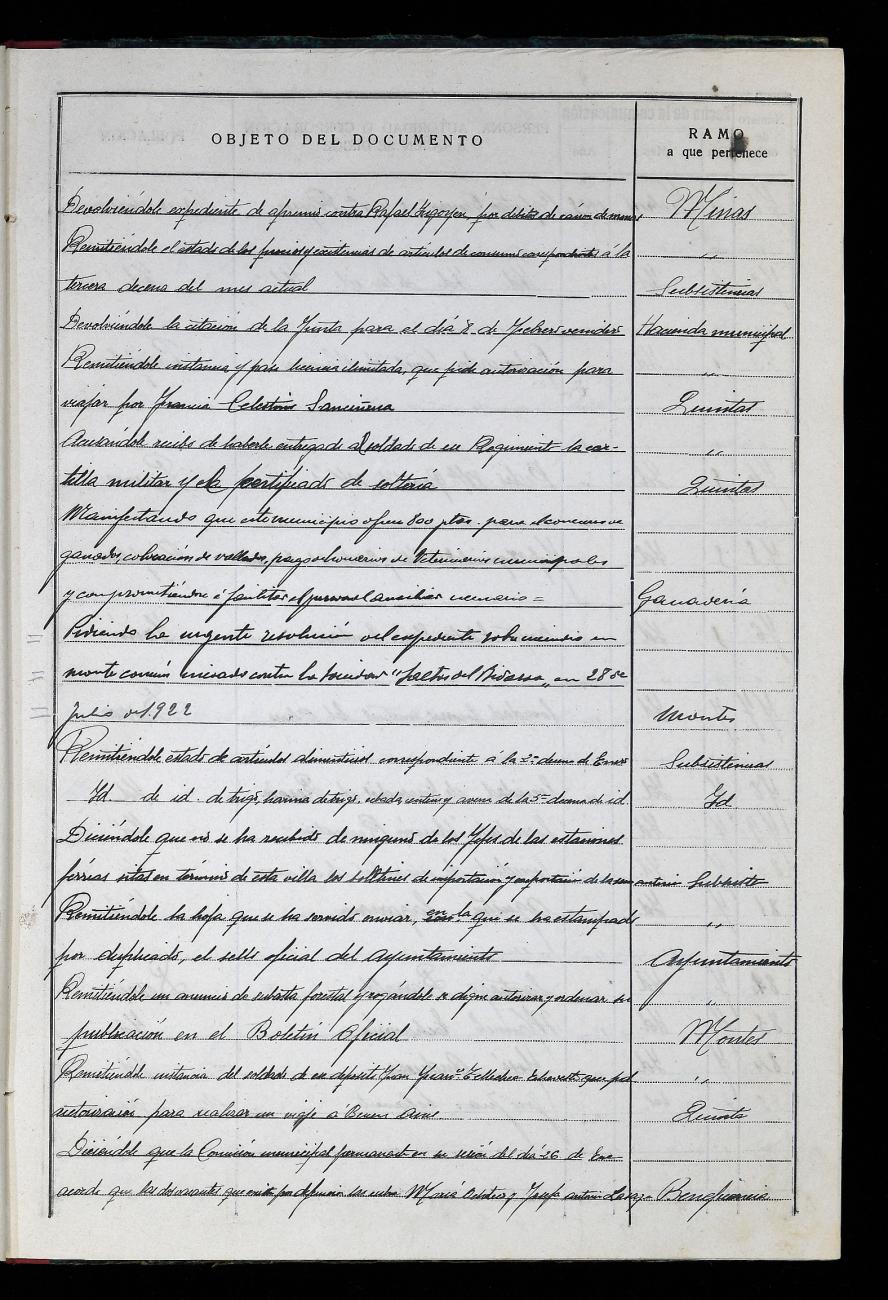 OBJETO DEL DOCUMENTO
RAMO
a que pertenece
Devolviéndole expediente de apremio contra Rafael Irigoyen, por débitos de cánon de minas Minas
Remitiéndole el estado de los precios y existencias de artículos de consumo correspondientes á la „
tercera decena del mes actual Subsistencias
Devolviéndole la citación de la Junta para el día 8 de Febrero venidero Hacienda municipal
Remitiéndole instancia y pase licencia ilimitada, que pide autorización para „
viajar por Francia Celestino Sanciñena Quintas
Acusándole recibo de haberle entregado al soldado de su Regimiento la car- „
tilla militar y el certificado de soltería Quintas
Manifestando que este municipio ofrece 800 ptas. para el concurso de
ganados, colocación de vallados, pago de honorarios de Veterinarios municipales
y comprometiéndose á facilitar el personal auxiliar necesario = Ganadería
Pidiendo la urgente resolución del expediente sobre incendio en
monte común incoado contra la Sociedad "Saltos del Bidasoa„ en 28 de
Julio de 1.922 Montes
Remitiéndole estado de artículos alimenticios correspondiente á la 2ª decena de Enero Subsistencias
Id. de id. de trigo, harina de trigo, cebada, centeno y avena de la decena de id. Id
Diciéndole que no se ha recibido de ninguno de los Jefes de las estaciones
férreas sitas en término de esta villa los boletines de importación y exportación de la semana anterior Subsiste
Remitiéndole la hoja que se ha servido enviar, en la que se ha estampado „
por duplicado, el sello oficial del Ayuntamiento Ayuntamiento
Remitiéndole un anuncio de subasta forestal y rogándole se digne autorizar y ordenar su „
publicación en el Boletín Oficial Montes
Remitiéndole instancia del soldado de ese depósito Juan que pide „
autorización para realizar un viaje á Buenos Aires. Quintas
Diciéndole que la Comisión municipal permanente en su sesión del día 26 de Ene-
acordó que las dos vacantes que existen por defunción las cubran María y Josefa Antonia Beneficencia